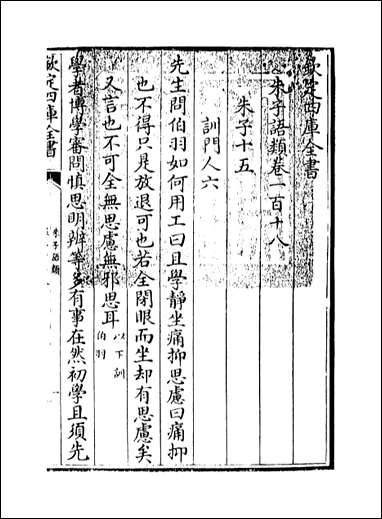 欽定四庫全書
朱子語類卷一百十八
朱子十五
訓門人六
先生問伯羽如何用工曰且學靜坐痛抑思慮曰痛抑
也不得只是放退可也若全閉眼而坐却有思慮矣
又言也不可全無思慮無邪思耳以下訓
伯羽
學者博學審問慎思明辨等多有事在然初學且須先
欽定四庫全書
朱子語類